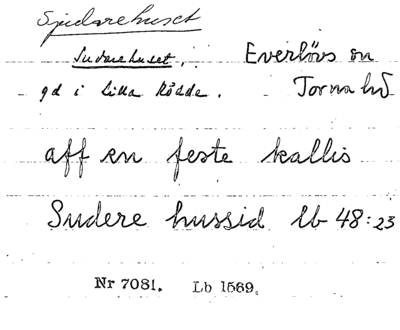 Sjudarehuset
Sudarehuset. Everlövs sn
gd i Lilla Ködde. Torna hd
aff en feste kallis
Sudere hussid lb 48:23
Nr 7081. Lb 1569.